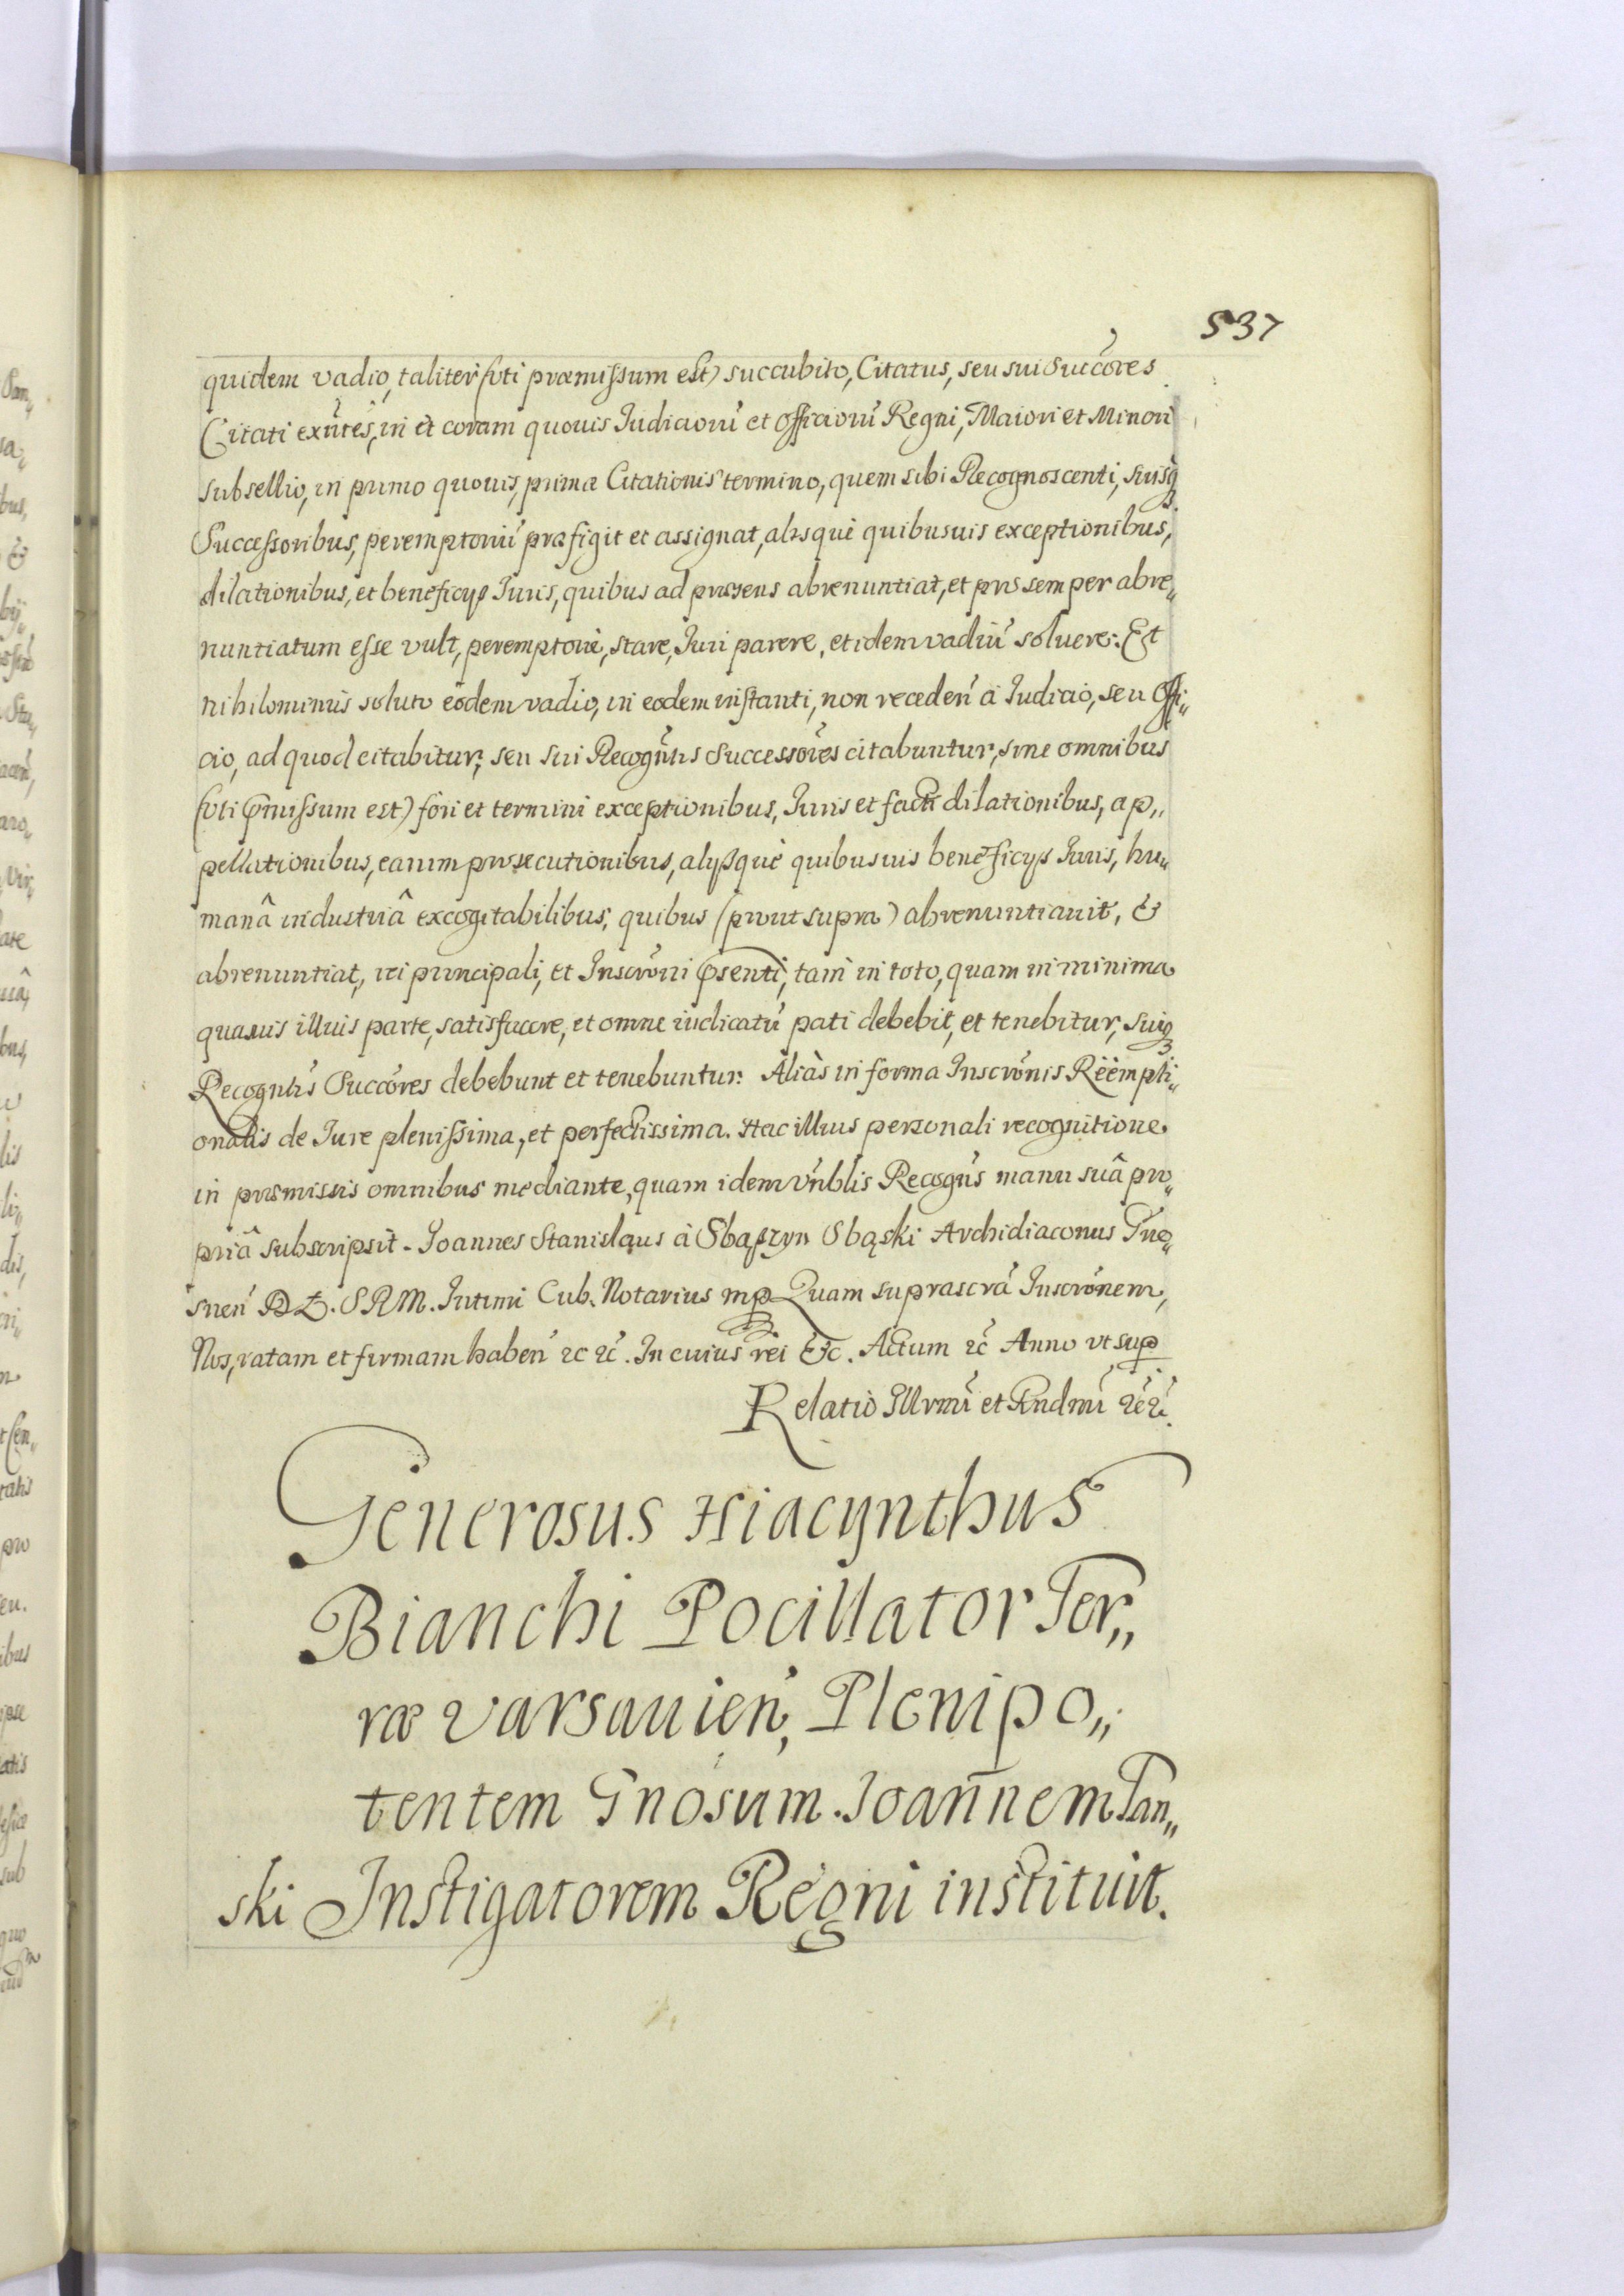 537
quidem vadio, taliter (uti præmissum est) succubito, Citatus, seu sui Succōres
Citati exn̄tes, in et coram quouis Iudiciorū et Officiorū Regni, Maiori et Minori
subsellio, in primo quouis, primæ Citationis termino, quem sibi Recognoscenti, suisq3
Successoribus, peremptoriū præfigit et assignat, absquè quibusuis exceptionibus,
dilationibus, et beneficijs Iuris, quibus ad præsens abrenuntiat, et pro semper abre„
nuntiatum esse vult, peremptoriè, stare, Iuri parere, et idem vadiū soluere: Et
nihilominus soluto eodem vadio, in eodem instanti, non receden̄ à Iudicio, seu Offi„
cio, ad quod citabitur; seu sui Recogn̄tis Successōres citabuntur, sine omnibus
(uti p̄missum est) fori et termini exceptionibus, Iuris et facti dilationibus, ap„
pellationibus, earum prosecutionibus, alijsquè quibusuis beneficijs Iuris, hu„
manâ industriâ excogitabilibus, quibus (prout supra) abrenuntiauit, &
abrenuntiat, rei principali, et Inscrōni p̄senti, tam in toto, quam in minima
quauis illius parte, satisfacere, et omne iudicatū pati debebit, et tenebitur, suiq3
Recogn̄tis Succōres debebunt et tenebuntur. Aliàs in forma Inscrōnis Rëëmpti„
onalis de Iure plenissima, et perfectissima. Hac illius personali recognitione
in præmissis omnibus mediante, quam idem Vn̄blis Recogn̄s manu suâ pro„
priâ subscripsit. Joannes Stanislaus à Sbąszyn Sbąski Archidiaconus Gne„
snen̄ S R M. Intimi Cub. Notarius mp Quam suprascrā Inscrōnem,
Nos, ratam et firmam haben̄ 2c 2c̄. In cuius rei &c. Actum 2c̄ Anno vt sup
Relatio Illrmī et Rndmī 2c̄ 2c̄.
Generosus Hiacynthus
Bianchi Pocillator Ter„
ræ Varsauien̄, Plenipo„
tentem Gnosum Joannem Tan„
ski Instigatorem Regni instituit.